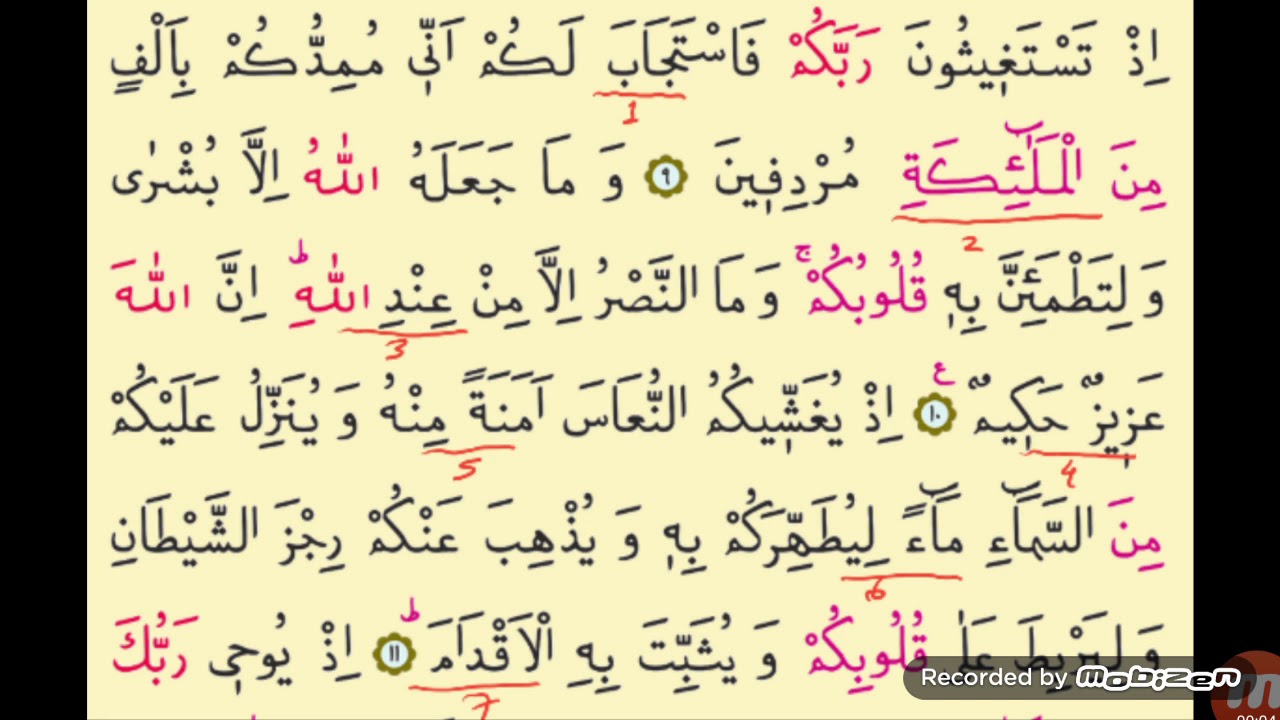 اِذْ تَسْتَغٖيثُونَ رَبَّكُمْ فَاسْتَجَابَ لَكُمْ اَنّٖى مُمِدُّكُمْ بِاَلْفٍ
1
مِنَ الْمَلٰٓئِكَةِ مُرْدِفٖينَ ٩ وَ مَا جَعَلَهُ اللّٰهُ اِلَّا بُشْرٰى
2
وَ لِتَطْمَئِنَّ بِهٖ قُلُوبُكُمْۚ وَ مَا النَّصْرُ اِلَّا مِنْ عِنْدِ اللّٰهِؕ اِنَّ اللّٰهَ
3
عَزٖيزٌ حَكٖيمٌ ع ١٠ اِذْ يُغَشّٖيكُمُ النُّعَاسَ اَمَنَةً مِنْهُ وَ يُنَزِّلُ عَلَيْكُمْ
5 4
مِنَ السَّمَٓاءِ مَٓاءً لِيُطَهِّرَكُمْ بِهٖ وَ يُذْهِبَ عَنْكُمْ رِجْزَ الشَّيْطَانِ
6
وَ لِيَرْبِطَ عَلٰى قُلُوبِكُمْ وَ يُثَبِّتَ بِهِ الْاَقْدَامَؕ ١١ اِذْ يُوحٖى رَبُّكَ
7
Recorded by mobizen
00:04